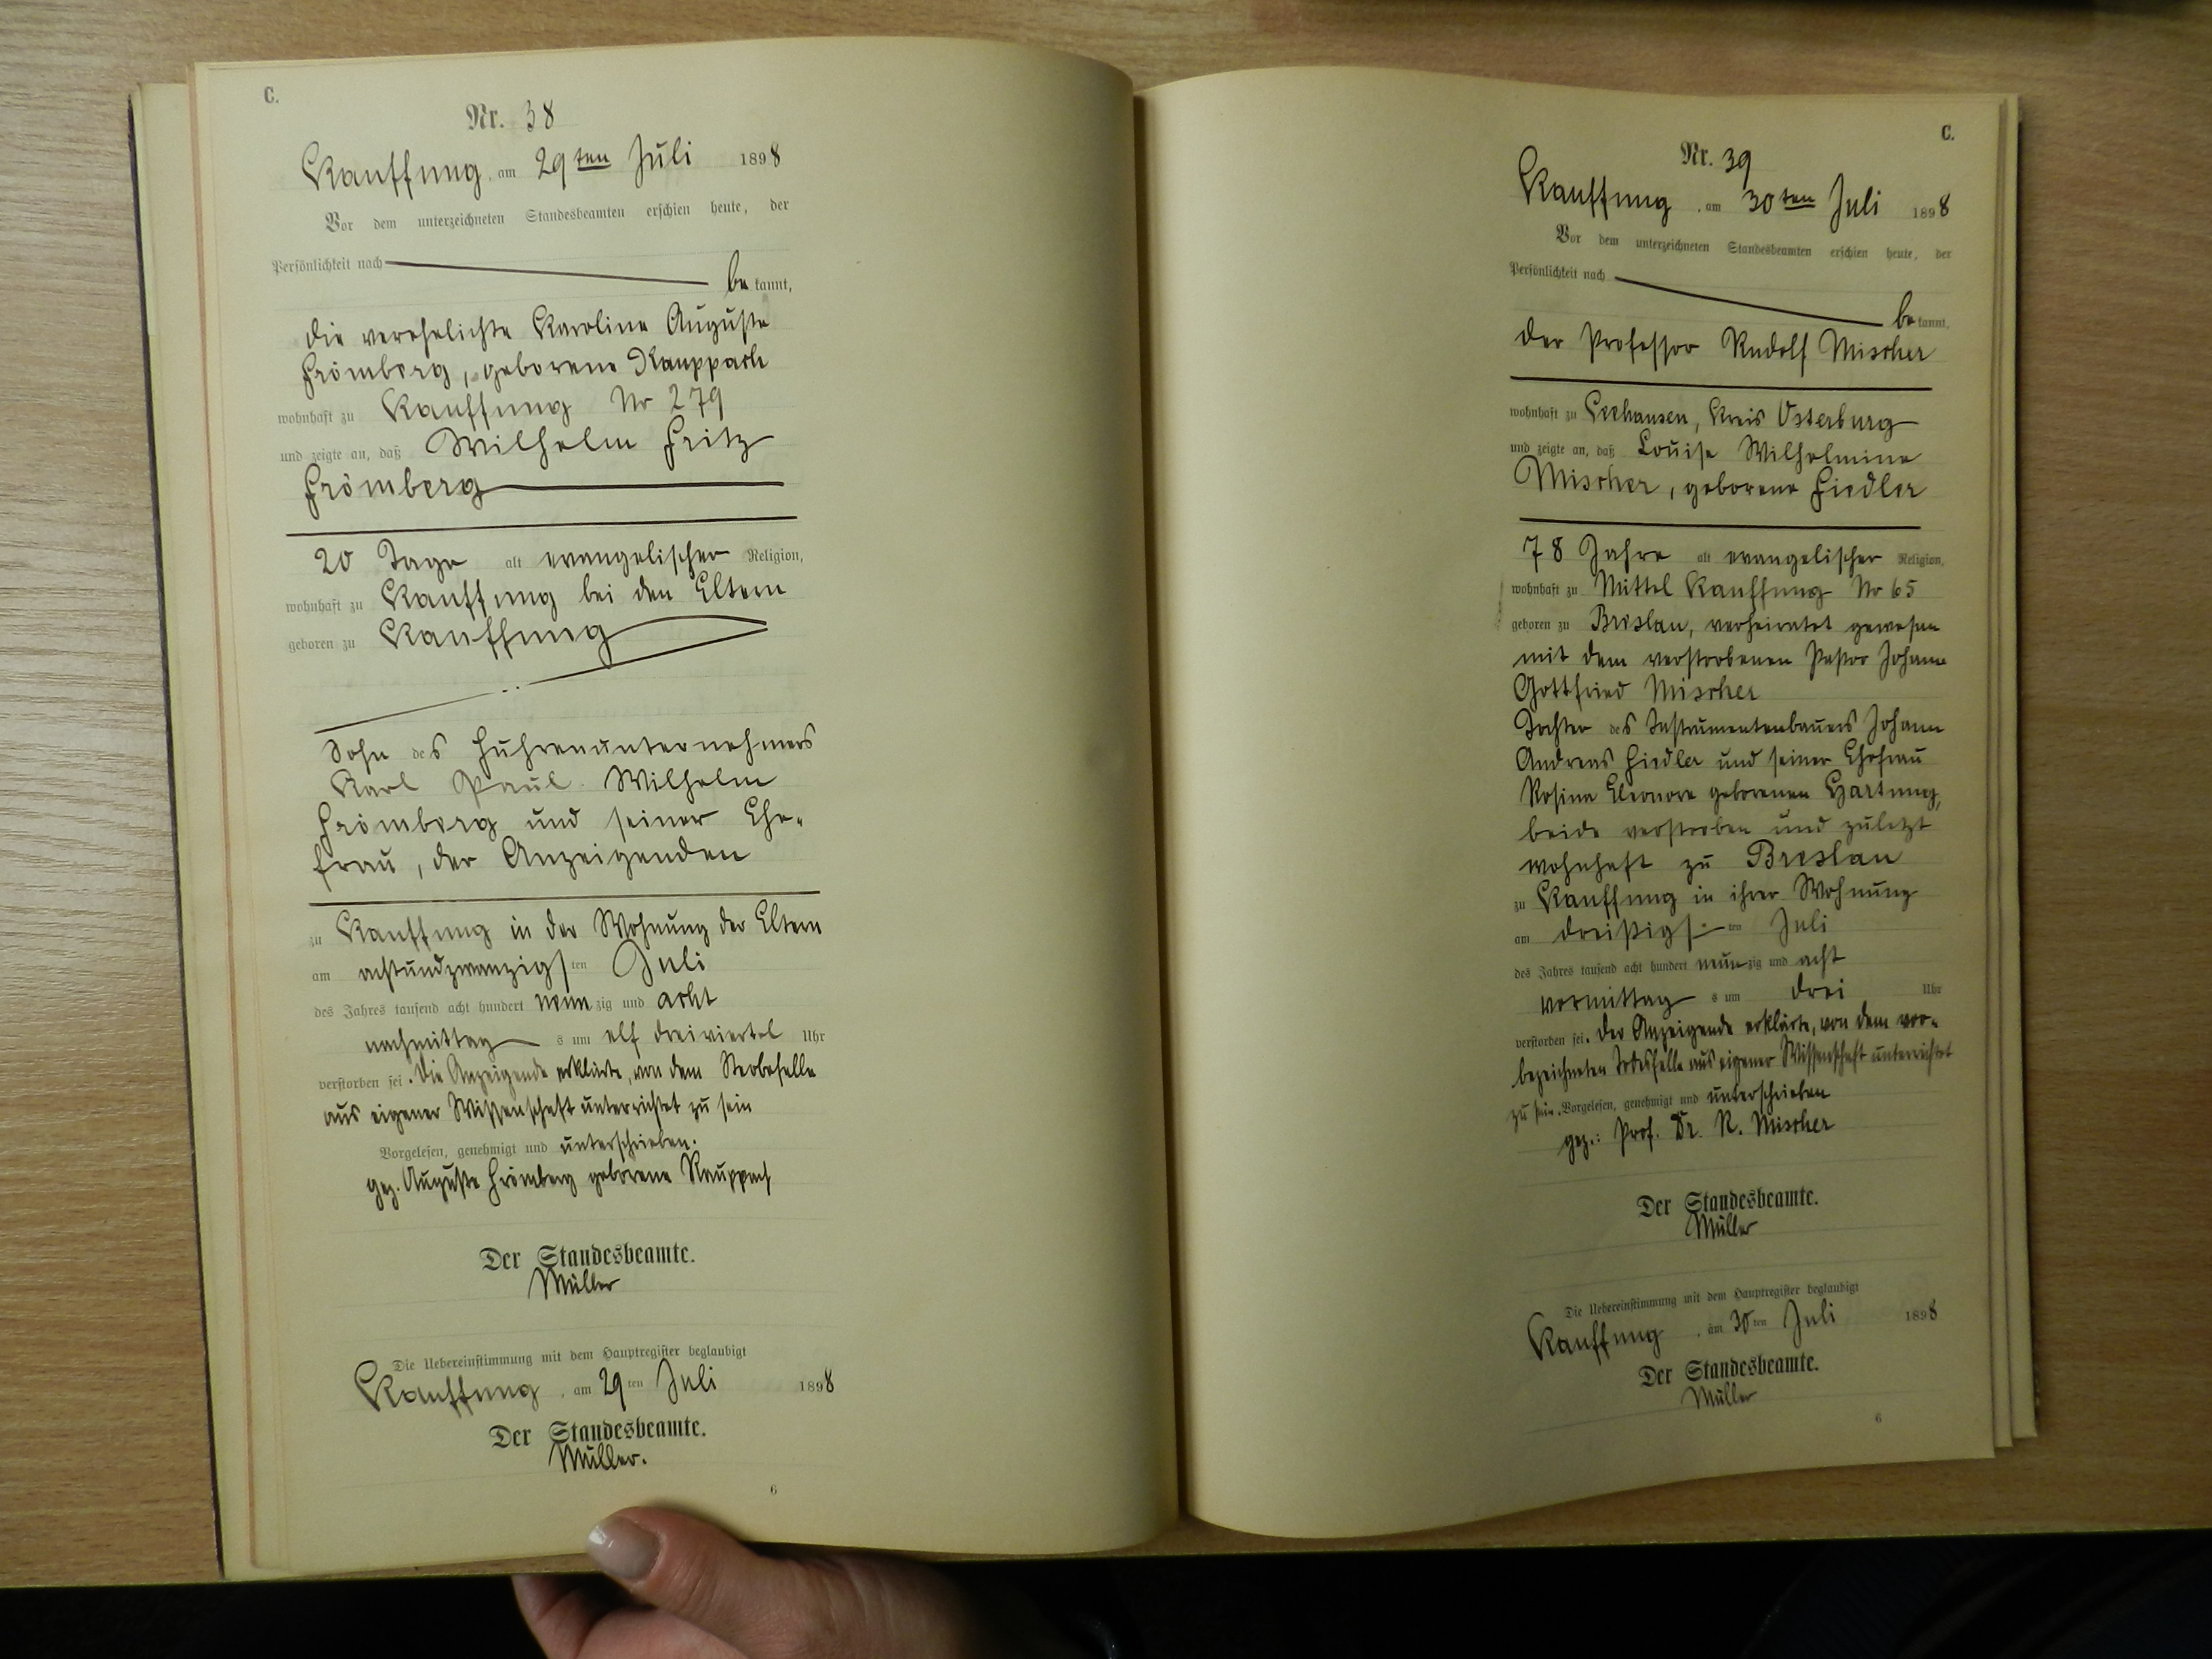 C.
Nr. 38
Kauffung, am 29ten Juli 1898
Vor dem unterzeichneten Standesbeamten erschien heute, der
Persönlichkeit nach
bekannt,
die verehelichte Karoline Auguste
Frömberg, geborene Rauppach
wohnhaft zu Kauffung Nr 279
und zeigte an, daß Wilhelm Fritz
Frömberg
20 Tage alt evangelischer Religion,
wohnhaft zu Kauffung bei den Eltern
geboren zu Kauffung
Sohn des Fuhrenunternehmers
Karl Paul Wilhelm
Frömberg und seiner Ehe-
frau, der Anzeigenden
zu Kauffung in der Wohnung der Eltern
am achtundzwanzigsten Juli
des Jahres tausend acht hundert neunzig und acht
nachmittags um elf dreiviertel Uhr
verstorben sei. Die Anzeigende erklärte, von dem Sterbefalle
aus eigener Wissenschaft unterrichtet zu sein
Vorgelesen, genehmigt und unterschrieben.
gez. Auguste Frömberg geborene Rauppach
Der Standesbeamte.
Müller
Die Uebereinstimmung mit dem Hauptregister beglaubigt
Kauffung, am 29ten Juli 1898
Der Standesbeamte.
Müller.
6
C.
Nr. 39
Kauffung, am 30ten Juli 1898
Vor dem unterzeichneten Standesbeamten erschien heute, der
Persönlichkeit nach
bekannt,
der Professor Rudolf Mischer
wohnhaft zu Seehausen, Kreis Osterburg
und zeigte an, daß Louise Wilhelmine
Mischer, geborene Fiedler
78 Jahre alt evangelischer Religion,
wohnhaft zu Mittel Kauffung Nr 65
geboren zu Breslau, verheiratet gewesen
mit dem verstorbenen Pastor Johann
Gottfried Mischer
Tochter des Instrumentenbauers Johann
Andreas Fiedler und seiner Ehefrau
Rosina Eleonore geborenen Hartung,
beide verstorben und zuletzt
wohnhaft zu Breslau
zu Kauffung in ihrer Wohnung
am dreißigsten Juli
des Jahres tausend acht hundert neunzig und acht
vormittags um drei Uhr
verstorben sei. Der Anzeigende erklärte, von dem vor-
bezeichneten Todesfalle aus eigener Wissenschaft unterrichtet
zu sein. Vorgelesen, genehmigt und unterschrieben
gez.: Prof. Dr. R. Mischer
Der Standesbeamte.
Müller
Die Uebereinstimmung mit dem Hauptregister beglaubigt
Kauffung, am 30ten Juli 1898
Der Standesbeamte.
Müller
6